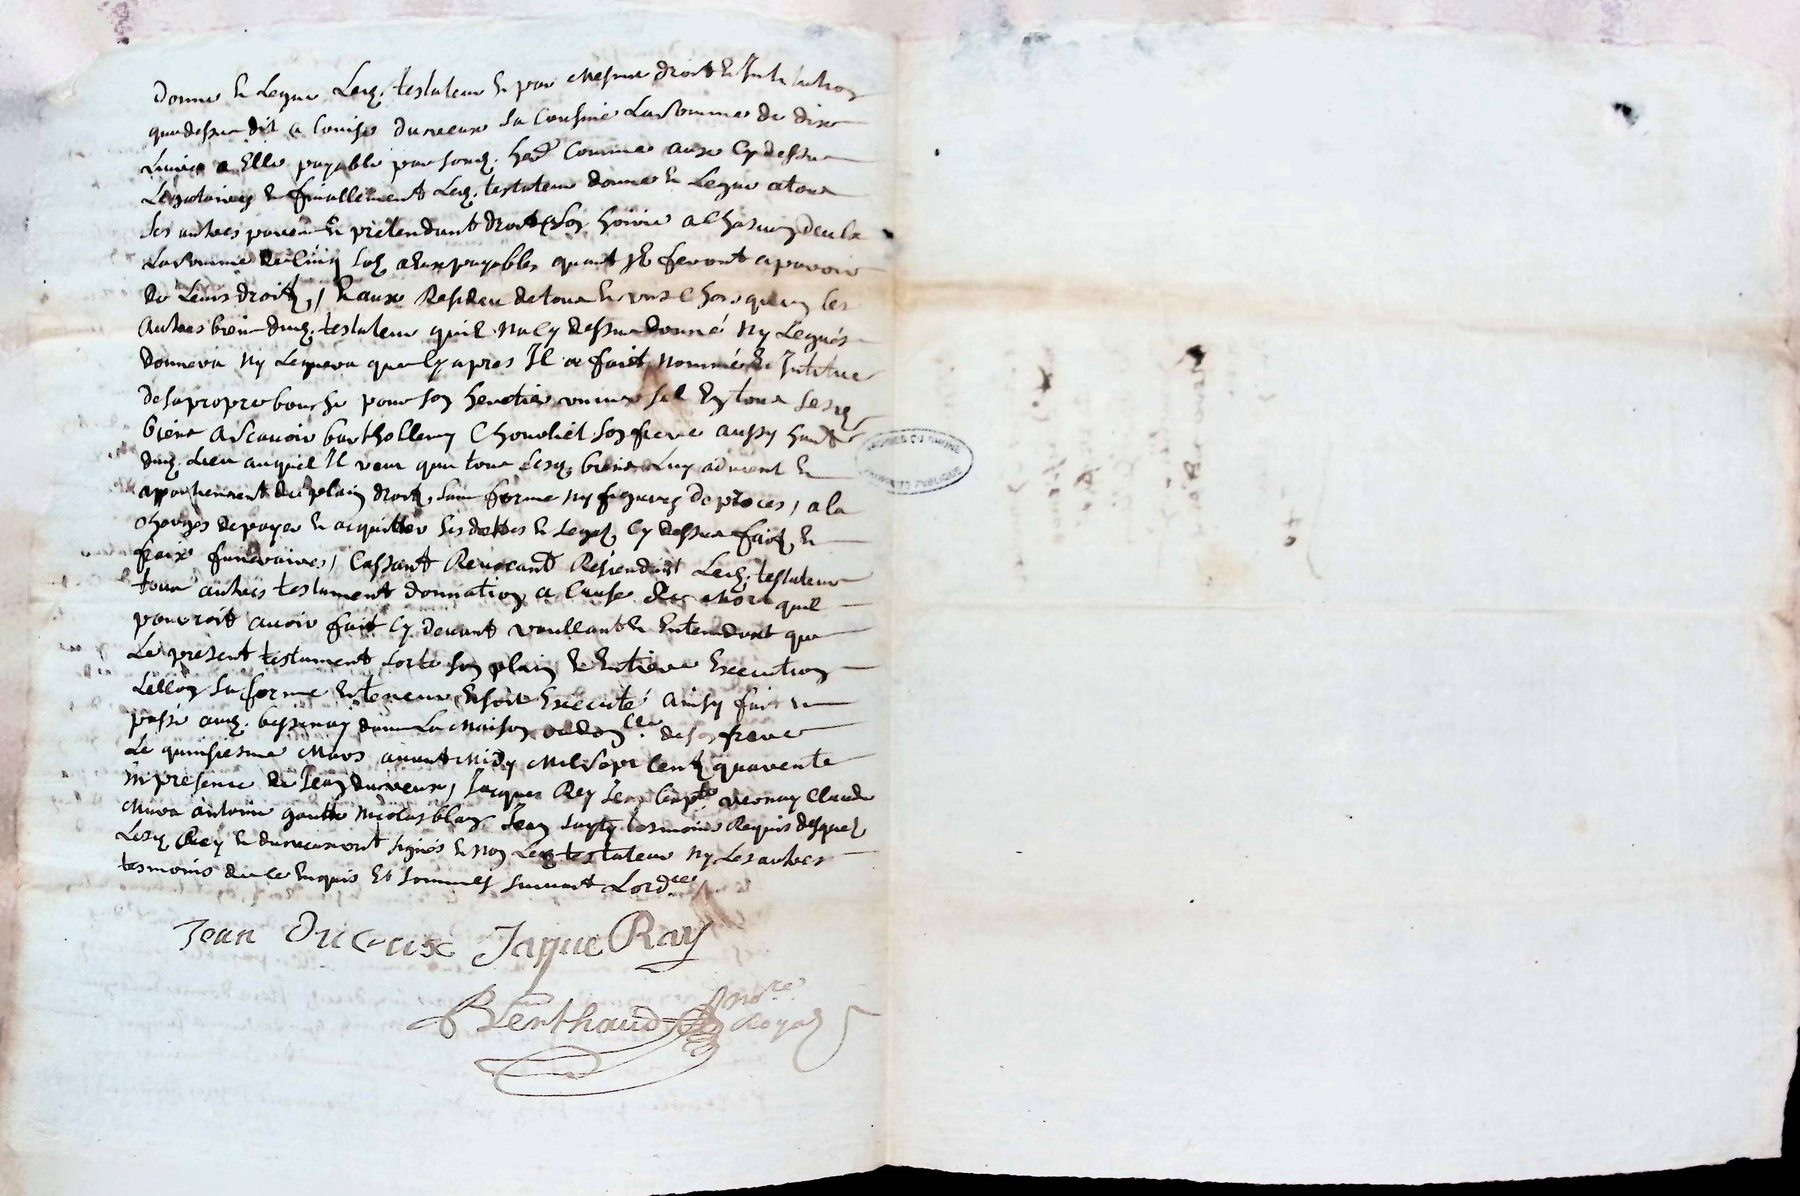 donne & legue led. testateur & par mesme droit d'Institution
que dessus dit a Louise Ducreux sa Cousine La Somme de dix
Livres a Elle payable par sond. hertr Comme aux Cy dessus
Legataires & finallement Led. testateur donne & Legue a tous
ses autres parents pretendant droit a son hoirie a Chascun deux
La Somme de Cinq solz a Eux payables quant Ils feront aparoir
de Leurs droitz, & aux Residu de tous & uns Chascungs les
Autres biens dud. testateur quil Na Cy dessus donné Ny Legués
donnera Ny Leguera que Cy apres Il a fait Nommé & Institué
de sa propre bouche pour son heretier univer sel En tous sesd.
biens Ascavoir barthollemy Chouvliet son frere aussy habt
dud. Lieu auquel Il veut que tous sesd. biens Luy advient &
appartiennent de plain droit, sans forme Ny figures de proces, a la
Charges de payer & acquitter ses dettes & Legatz Cy dessus faitz &
fraix funeraires, Cassant Revocant Led. testateur
tous autres testament donnation a Cause de mort quil
pourroit avoir fait Cy devant voullant & Entendant que
Le present testament sorte son plain & Entiere Execution
sellon sa forme & teneur & soit Executé Ainsy fait &
passé aud. bessenay dans La Maison & domlle de son frere
Le quinsiesme Mars avant Midy Mil sept Centz quarente
En presence de Jean Ducreux, Jacques Rey Jean bapte vernay Claude
Mura antoine goutte Nicolas blanc Jean tesmoins Requis desquelz
Lesd. Rey & ducreux ont signés & Non Led. testateur Ny Les autres
tesmoins de ce Enquis Et sommés suivant Lordce
Jean Ducreux Jaque Ray
Berthaud Nore
Royal